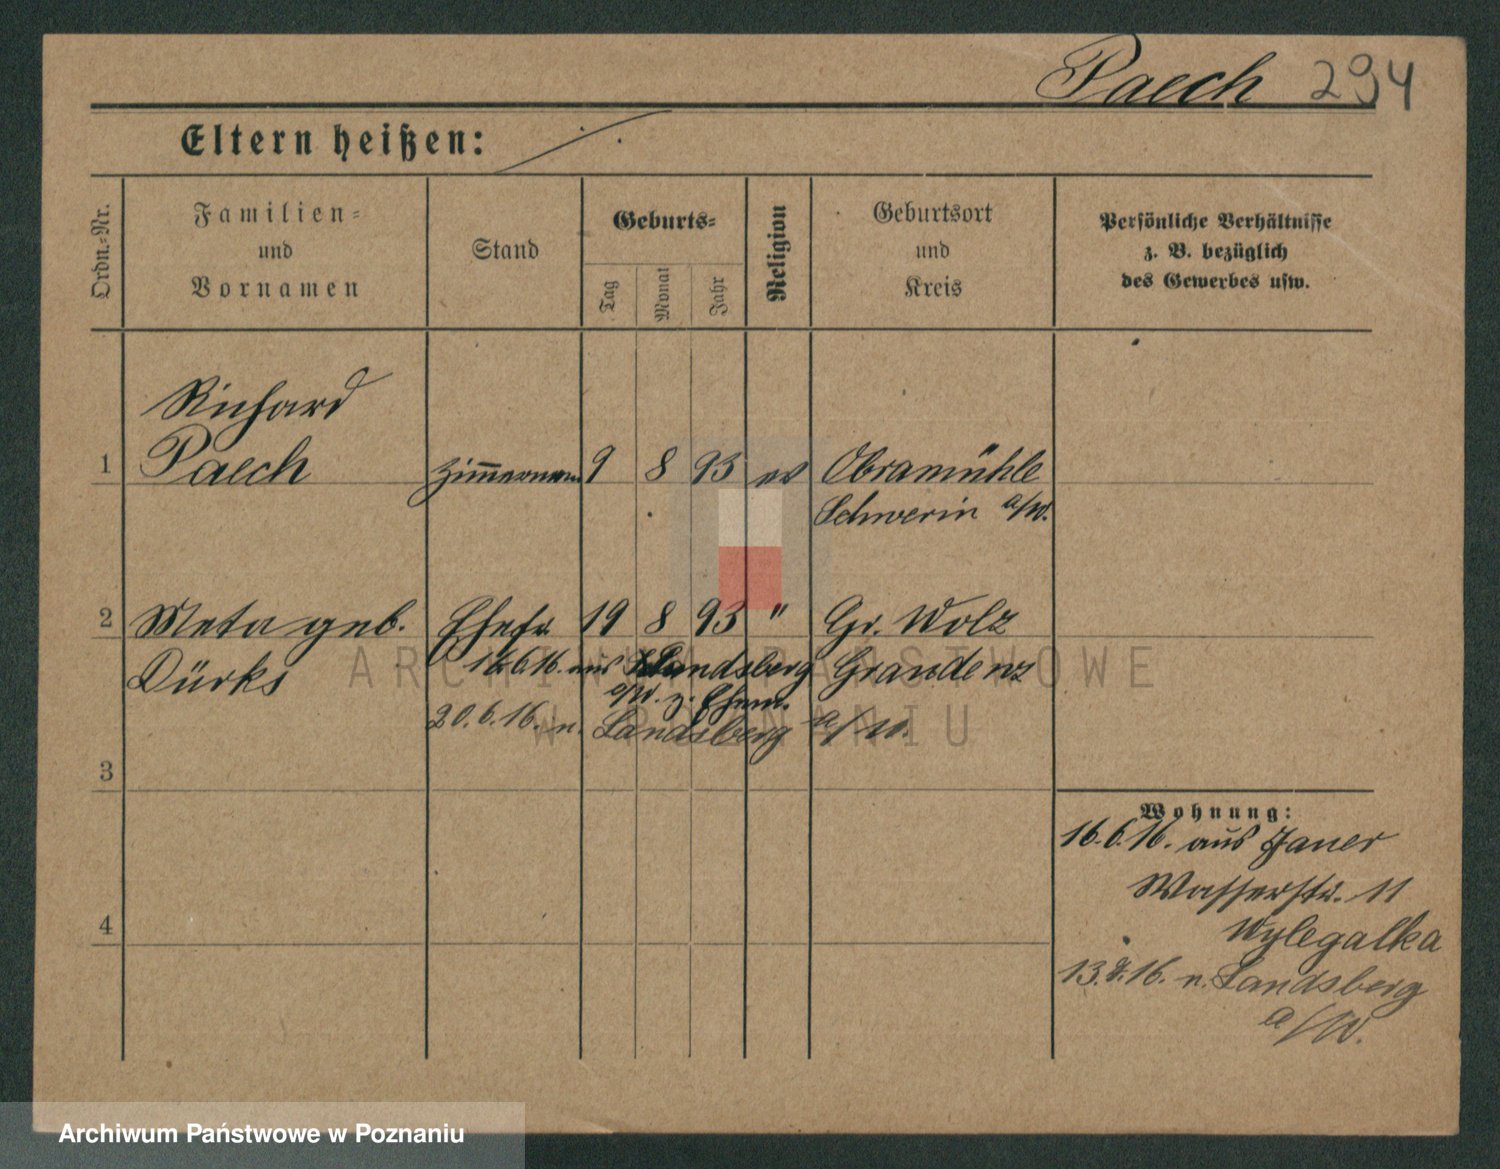 Paech 294
Eltern heißen:
Ordn.-Nr.
Familien-
und
Vornamen
Stand
Geburts-
Tag
Monat
Jahr
Religion
Geburtsort
und
Kreis
Persönliche Verhältnisse
z. B. bezüglich
des Gewerbes usw.
Richard
1 Paech Zimmermann 9 8 93 ev Obramühle
Schwerin a/W.
2 Meta geb. Ehefr 19 8 93 " Gr. Wolz
Dürks
16.6.16. aus Landsberg Graudenz
a/W. z. Ehem.
20.6.16. n. Landsberg a/W.
3
Wohnung:
16.6.16. aus Jauer
Wasserstr. 11
Wylegalka
4
13. 16. n. Landsberg
a/W.
ARCHIWUM PAŃSTWOWE
W POZNANIU
Archiwum Państwowe w Poznaniu